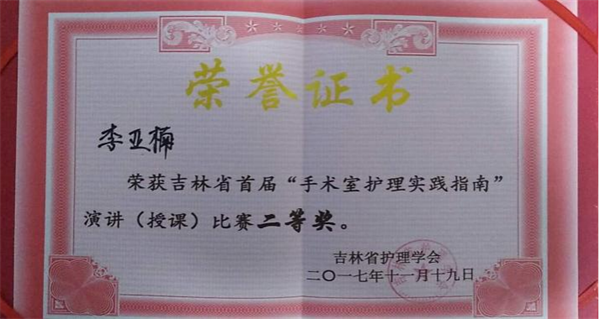 荣誉证书
李亚楠
荣获吉林省首届“手术室护理实践指南”
演讲（授课）比赛二等奖。
吉林省护理学会
二〇一七年十一月十九日